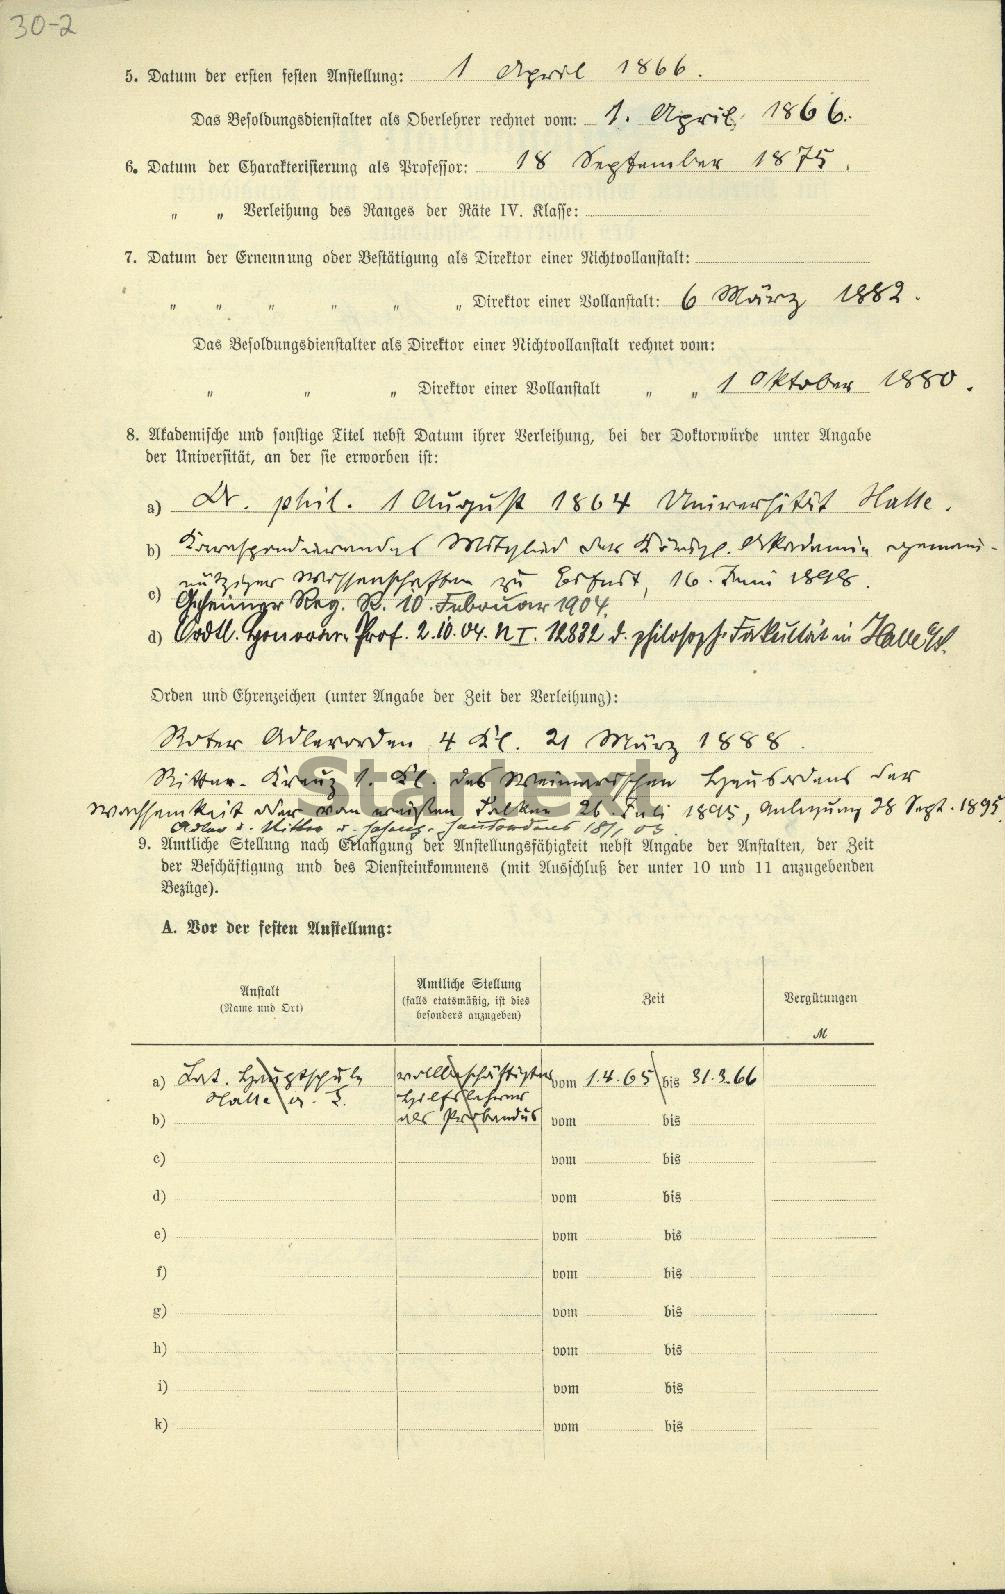 30-2
5. Datum der ersten festen Anstellung: 1 April 1866.
Das Besoldungsdienstalter als Oberlehrer rechnet vom: 1. April 1866.
6. Datum der Charakterisierung als Professor: 18 September 1875.
" " Verleihung des Ranges der Räte IV. Klasse:
7. Datum der Ernennung oder Bestätigung als Direktor einer Nichtvollanstalt:
" " " " " " Direktor einer Vollanstalt: 6 März 1882.
Das Besoldungsdienstalter als Direktor einer Nichtvollanstalt rechnet vom:
" " " Direktor einer Vollanstalt " " 1 Oktober 1880.
8. Akademische und sonstige Titel nebst Datum ihrer Verleihung, bei der Doktorwürde unter Angabe
der Universität, an der sie erworben ist:
a) Dr. phil. 1 August 1864 Universität Halle.
b) Korrespondierendes Mitglied der Königl. Akademie gemein-
nütziger Wissenschaften zu Erfurt, 16. Juni 1898.
c) Geheimer Reg. R. 10. Februar 1904.
d) Ordtl. Honorar-Prof. 2.10.04. U I. 12832 d. philosoph. Fakultät in Halle a/S.
Orden und Ehrenzeichen (unter Angabe der Zeit der Verleihung):
Roter Adlerorden 4 Kl. 21 März 1888.
Ritter-Kreuz 1. Kl. des Weimarischen Hausordens der
Wachsamkeit oder vom weißen Falken 26. Juli 1895, Anlegung 28 Sept. 1895.
Adler d. Ritter d. Hohenz. Hausordens 18/1 03
Startext
9. Amtliche Stellung nach Erlangung der Anstellungsfähigkeit nebst Angabe der Anstalten, der Zeit
der Beschäftigung und des Diensteinkommens (mit Ausschluß der unter 10 und 11 anzugebenden
Bezüge).
A. Vor der festen Anstellung:
Anstalt
(Name und Ort)
Amtliche Stellung
(falls etatsmäßig, ist dies
besonders anzugeben)
Zeit
Vergütungen
M
a) Lat. Hauptschule vollbeschäftigter vom 1.4.65 bis 31.3.66
Halle a. S. Hilfslehrer
b) als Probandus vom bis
c) vom bis
d) vom bis
e) vom bis
f) vom bis
g) vom bis
h) vom bis
i) vom bis
k) vom bis